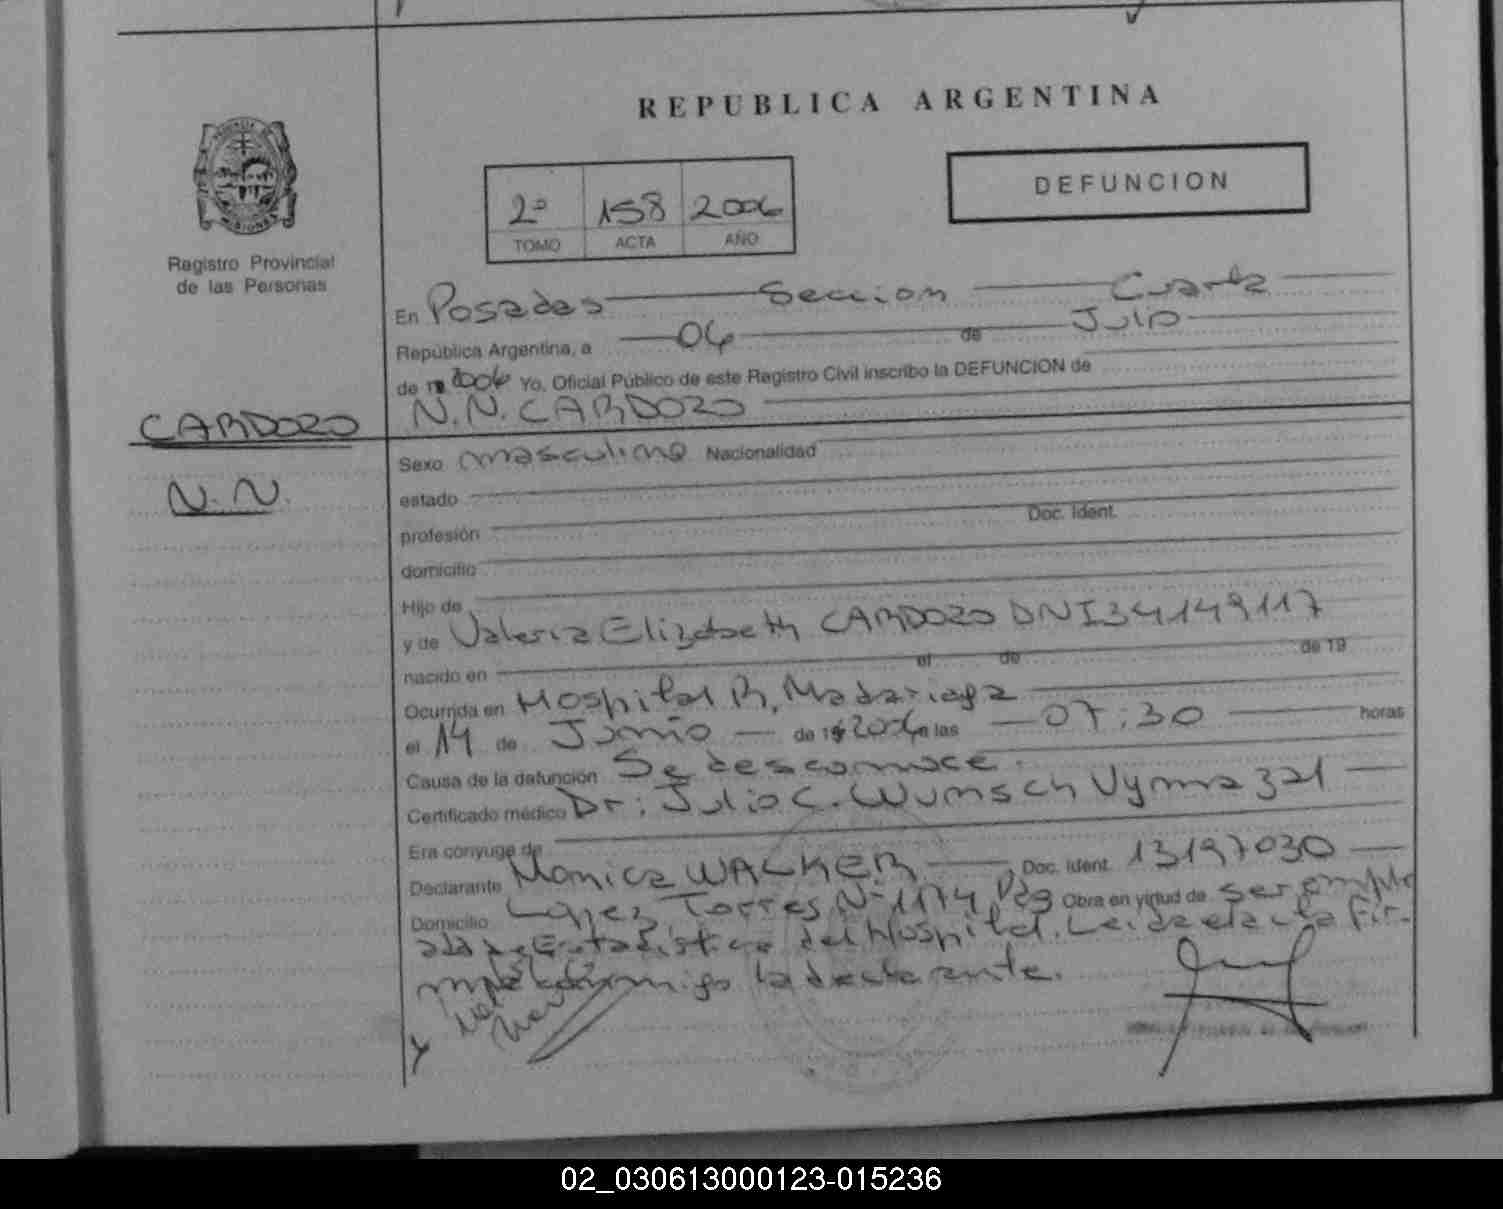 REPUBLICA ARGENTINA
DEFUNCION
2º 158 2006
TOMO ACTA AÑO
Registro Provincial
de las Personas
En Posadas Seccion Cuarta
República Argentina, a 06 de Julio
de 19 2006 Yo, Oficial Público de este Registro Civil inscribo la DEFUNCION de
N.N. CARDOZO
CARDOZO
N.N.
Sexo masculino Nacionalidad
estado
profesión Doc. Ident.
domicilio
Hijo de
y de Valeria Elizabeth CARDOZO DNI 34149117
nacido en el de de 19
Ocurrida en Hospital R. Madariaga
el 14 de Junio de 19 2006 a las 07:30 horas
Causa de la defunción Se desconoce.
Certificado médico Dr: Julio C. Wunsch Vymazal
Era conyuge de
Declarante Monica WALKER Doc. Ident. 13197030
Domicilio López Torres Nº 1174 Pdas Obra en virtud de ser emple
ada de Estadistica del Hospital. Leida el acta fir-
mala conmigo la declarante.
02_030613000123-015236